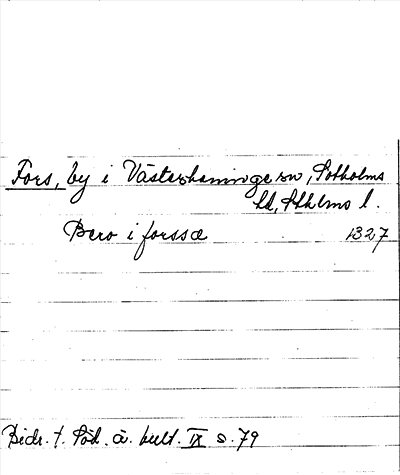 Fors, by i Västerhaninge sn, Sotholms
hd, Sthlms l.
Bero i forssæ 1327
Bidr. t. Söd. ä. kult. IX s. 79